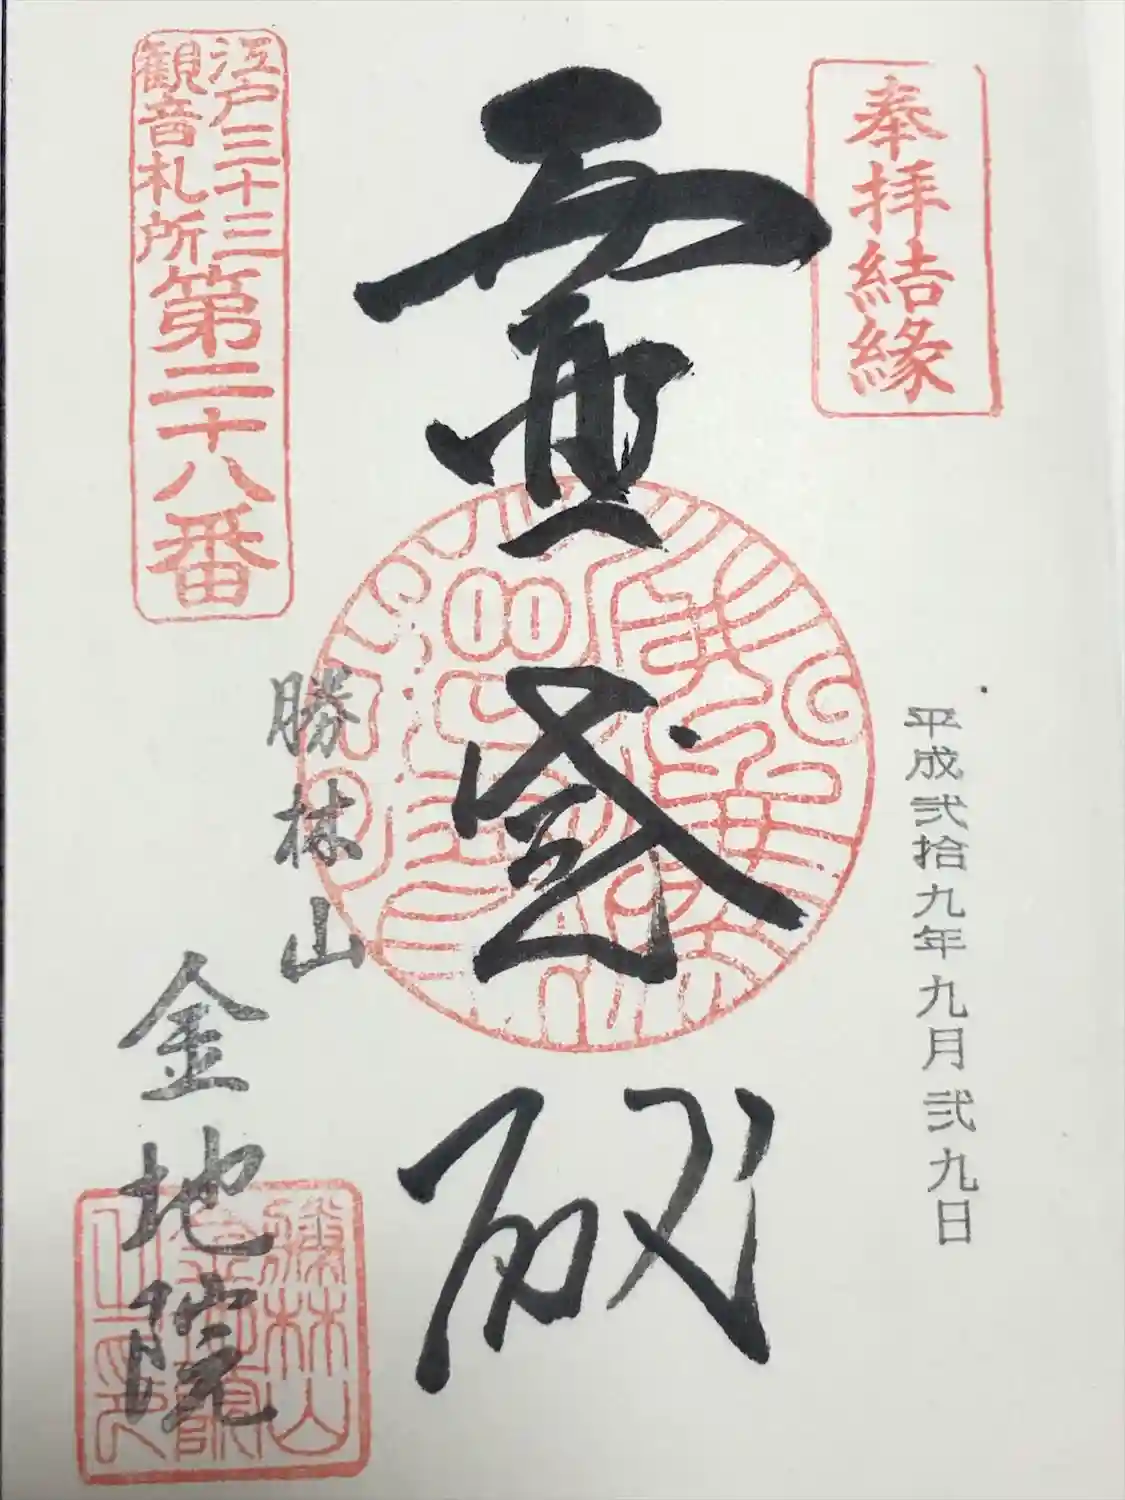 奉拝結縁
平成弐拾九年九月弐九日
霊感殿
勝林山
金地院
江戸三十三
観音札所
第二十八番